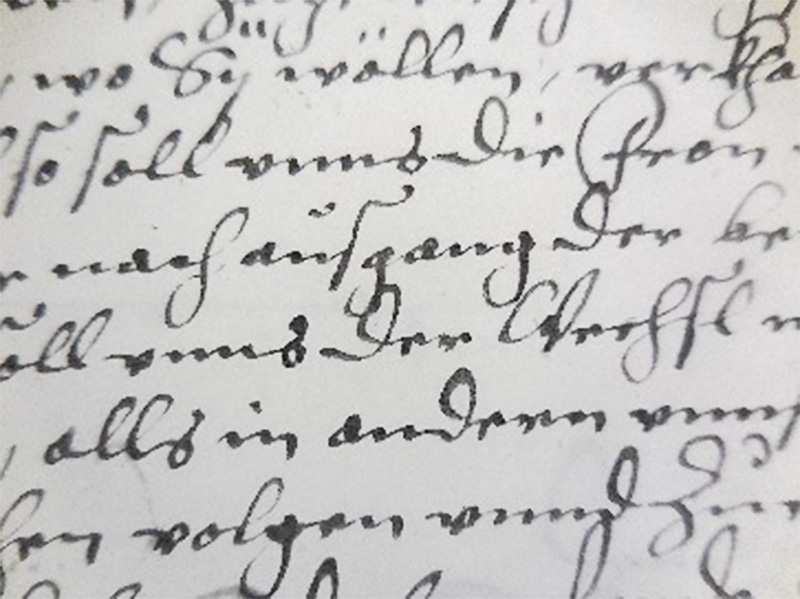 wo Sÿ wöllen, verkha
so soll vnns die Fron
nach ausgang der be
oll vnns der Wechsl
, alls in andern vnns
hen volgen vnnd Zue